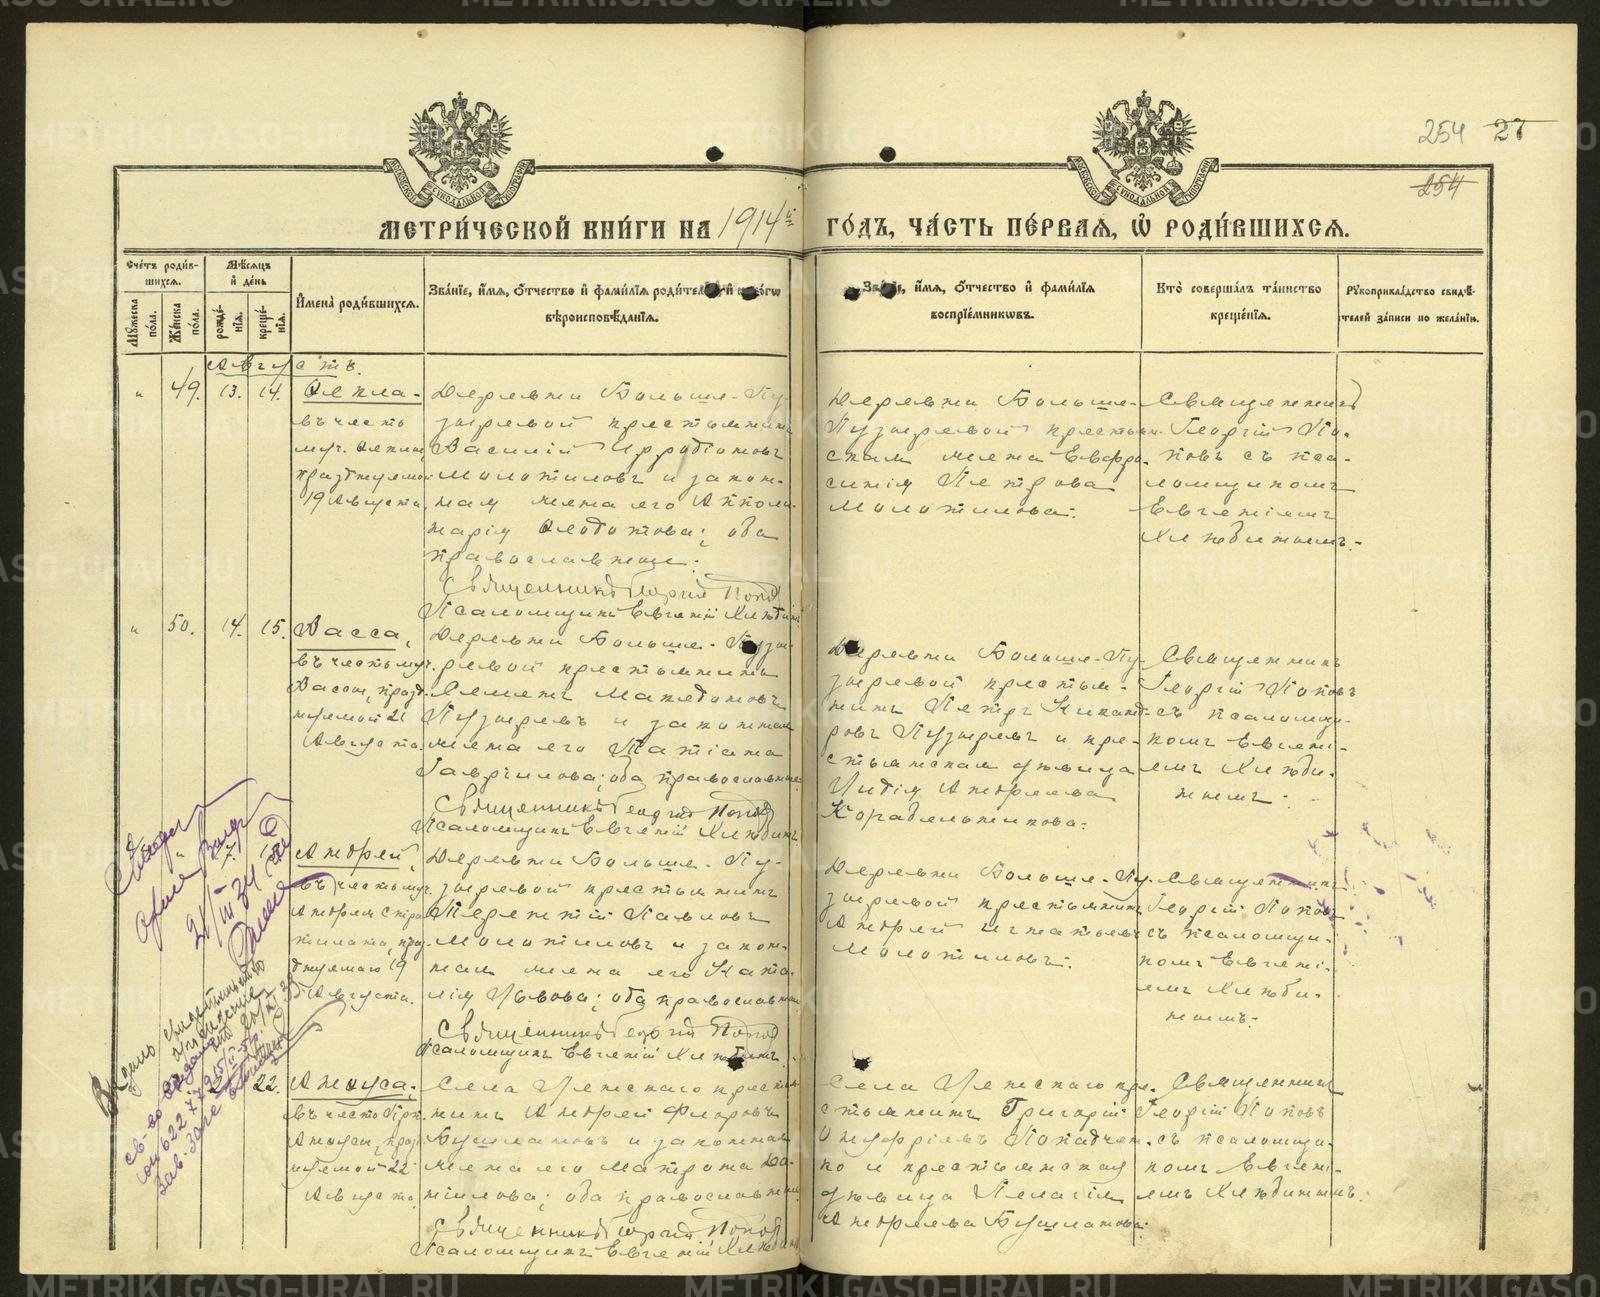 254 27
254
МЕТРИ́ЧЕСКОЙ КНИ́ГИ НА 1914й ГО́ДЪ, ЧА́СТЬ ПЕ́РВАЯ, Ѿ РОДИ́ВШИХСЯ.
Сче́тъ роди́вшихся.
Му́жеска по́ла.
Же́нска по́ла.
Мѣ́сяцъ и҆ де́нь
рожде́нїя.
креще́нїя.
И҆мена̀ роди́вшихся.
Зва́нїе, и҆́мя, ѻ҆́тчество и҆ фами́лїя роди́телей, и҆ како́гѡ
вѣроисповѣ́данїя.
Зва́нїе, и҆́мя, ѻ҆́тчество и҆ фами́лїя
воспрїе́мникѡвъ.
Кто̀ соверша́лъ та́инство
креще́нїя.
Рꙋкоприкла́дство свидѣ́-
телей за́писи по жела́нїю.
Августъ.
" 49. 13. 14.
Ѳекла-
въ честь
муч. Ѳеклы,
празднуемой
19 Августа.
Деревни Больше-Пу-
зыревой крестьянинъ
Василій Иродіоновъ
Молотиловъ и закон-
ная жена его Аполи-
нарія Ѳедотова; оба
православные.
Священникъ Георгій Поповъ
Псаломщикъ Евгеній Хлѣбинъ
Деревни Больше-
Пузыревой крестьян-
ская жена Евфро-
синія Петрова
Молотилова.
Священникъ
Георгій По-
повъ съ пса-
ломщикомъ
Евгеніемъ
Хлѣбинымъ.
" 50. 14. 15.
Васса,
въ честь муч.
Вассы, празд-
нуемой 21
Августа.
Деревни Больше-Пузы-
ревой крестьянинъ
Семенъ Македоновъ
Пузыревъ и законная
жена его Татіана
Гаврілова; оба православные.
Священникъ Георгій Поповъ
Псаломщикъ Евгеній Хлѣбинъ
Деревни Больше-Пу-
зыревой крестьян-
инъ Петръ Никанд-
ровъ Пузыревъ и кре-
стьянская дѣвица
Лидія Андреева
Корабельникова.
Священникъ
Георгій Поповъ
съ псаломщи-
комъ Евгені-
емъ Хлѣби-
нымъ.
" 17. 18
Андрей,
въ честь муч.
Андрея Стра-
тилата, праз-
днуемаго 19
Августа.
Деревни Больше-Пу-
зыревой крестьянинъ
Терентій Павловъ
Молотиловъ и закон-
ная жена его Ната-
лія Львова; оба православные.
Священникъ Георгій Поповъ
Псаломщикъ Евгеній Хлѣбинъ
Деревни Больше-Пу-
зыревой крестьянинъ
Андрей Игнатьевъ
Молотиловъ.
Священникъ
Георгій Поповъ
съ псаломщи-
комъ Евгені-
емъ Хлѣби-
нымъ.
22.
Анѳуса,
въ честь
Анѳусы, праз-
нуемой 22
Августа.
Села крестья-
нинъ Андрей Флоровъ
Бушлановъ и законная
жена его Матрона Да-
ніилова; оба православные.
Священникъ Георгій Поповъ
Псаломщикъ Евгеній Хлѣбинъ
Села кре-
стьянинъ Григорій
Онуфріевъ Попадчен-
ко и крестьянская
дѣвица Пелагія
Андреева Бушланова.
Священникъ
Георгій Поповъ
съ псаломщи-
комъ Евгені-
емъ Хлѣбинымъ.
21/III 34
Выдано свидетельство
о рождении